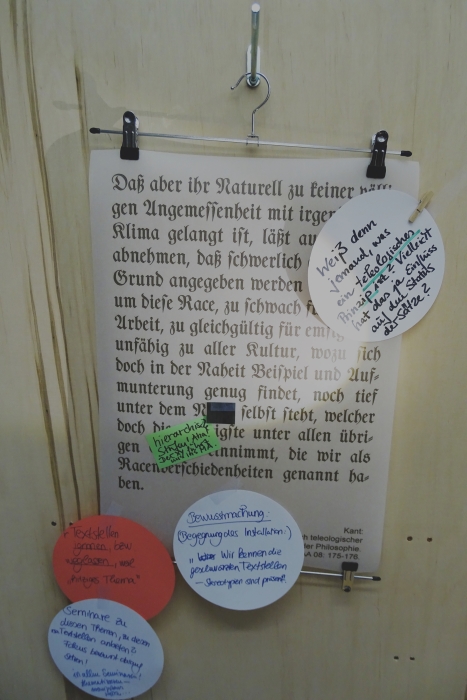 Daß aber ihr Naturell zu keiner völli
gen Angemessenheit mit irgen
Klima gelangt ist, läßt
abnehmen, daß schwerlich
Grund angegeben werden
um diese Race, zu schwach
Arbeit, zu gleichgültig für
unfähig zu aller Kultur, wozu sich
doch in der Naheit Beispiel und Auf-
munterung genug findet, noch tief
unter dem N selbst steht, welcher
doch die igste unter allen übri-
gen einnimmt, die wir als
Racenverschiedenheiten genannt ha-
ben.
Kant:
h teleologischer
der Philosophie.
AA 08: 175-176.
Weiß denn
jemand, was
ein teleologisches
Prinzip ist? Vielleicht
hat das ja Einfluss
auf den Status
der Sätze?
hierarchische
Stufen!
Bewusstmachung:
(Begegnung des Installation:)
" Wir kennen die
geschwärzten Textstellen
– Stereotypien sind präsent.
"Textstellen
Thema"
Seminare zu
diesen Themen, zu diesen
Textstellen anbieten &
Fokus bewusst darauf